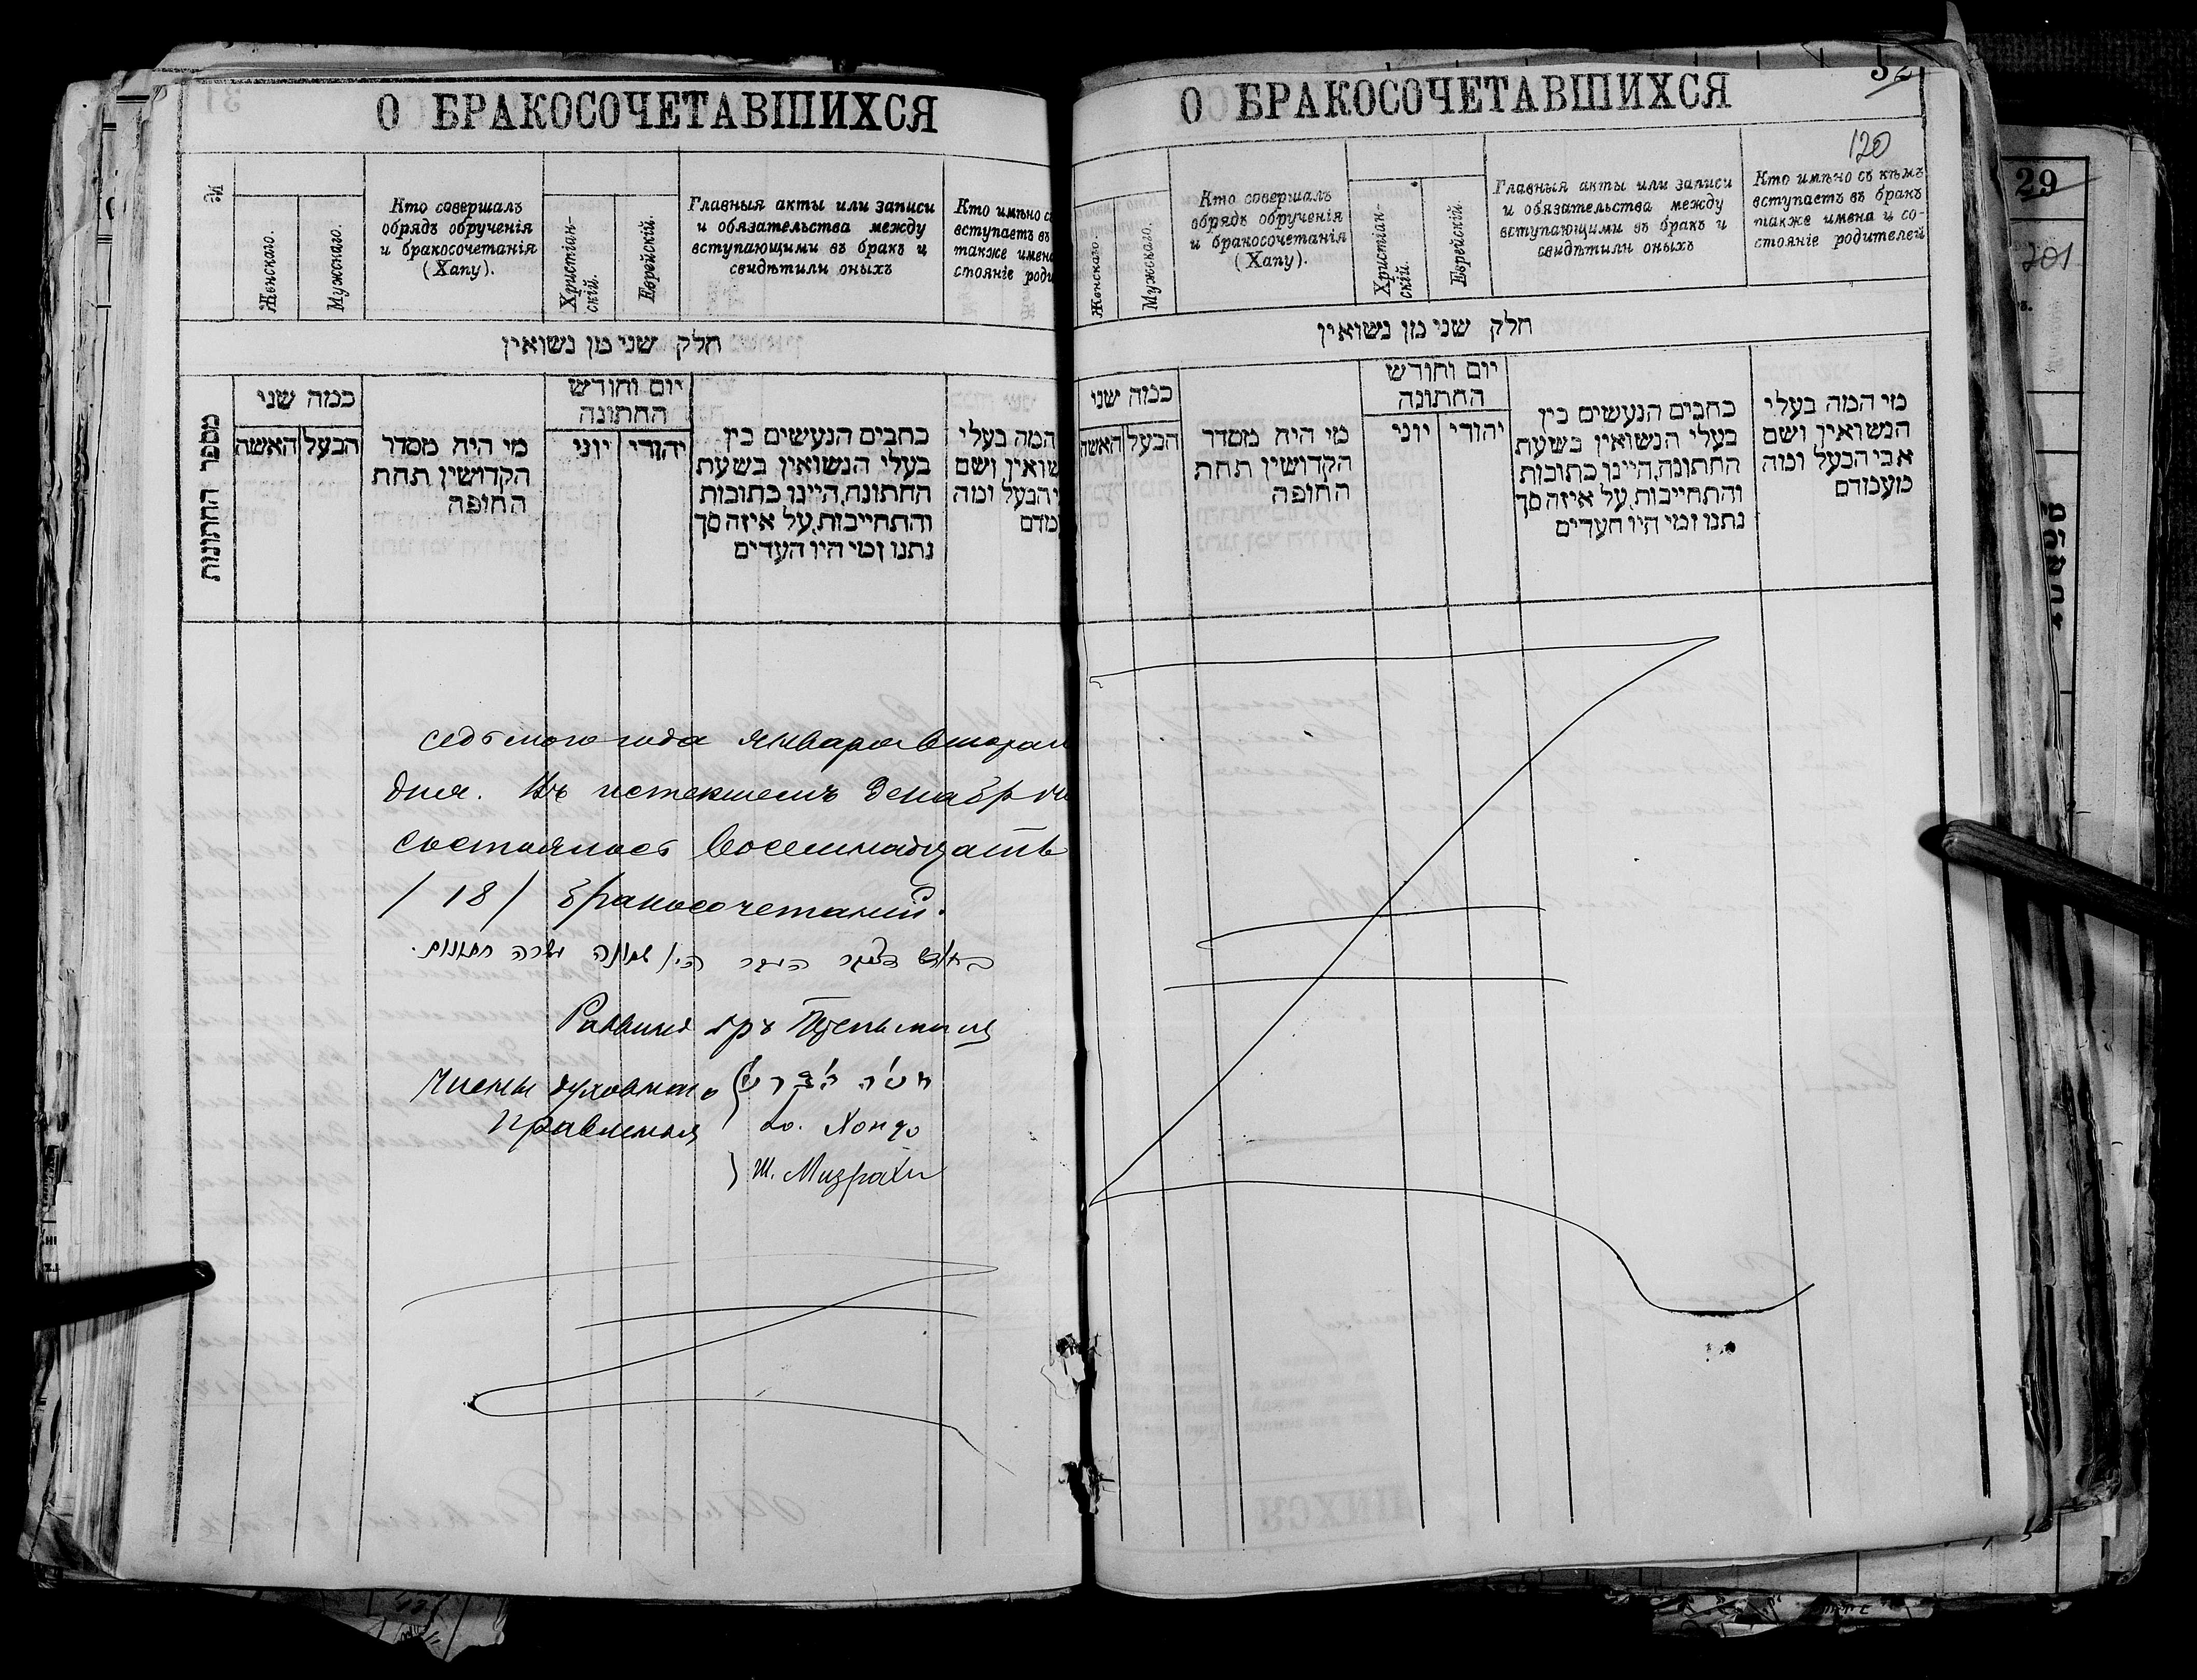 О БРАКОСОЧЕТАВШИХСЯ
№
Женскаго.
Мужскаго.
Кто совершалъ
обрядъ обрученія
и бракосочетанія
(Хапу).
Христіан-
скій.
Еврейскій.
Главныя акты или записи
и обязательства между
вступающими въ бракъ и
свидѣтили оныхъ
Кто имѣно съ
вступаетъ въ
также имена
стояніе роди
חלק שני מן נשואין
מספר החתונות
כמה שני
האשה
הבעל
מי היה מסדר
הקדושין תחת
החופה
יום וחודש
החתונה
יוני
יהודי
כתבים הנעשים בין
בעלי הנשואין בשעת
החתונה, היינו כתובות
והתחייבות, על איזה סך
נתנו ומי היו העדים
המה בעלי
שואין ושם
י הבעל ומה
מדם
седьмого года января втораго
дня. Въ истекшемъ декабрѣ
состоялось восемнадцать
/ 18 / бракосочетаній.
בחודש דצמבר העבר היו שמונה עשרה חתונות.
Раввинъ
Члены духовнаго
Правленія
Хондо
Ш. Мизрахи
О БРАКОСОЧЕТАВШИХСЯ
120
Женскаго.
Мужскаго.
Кто совершалъ
обрядъ обрученія
и бракосочетанія
(Хапу).
Христіан-
скій.
Еврейскій.
Главныя акты или записи
и обязательства между
вступающими въ бракъ и
свидѣтили оныхъ
Кто имѣно съ кѣмъ
вступаетъ въ бракъ
также имена и со-
стояніе родителей
חלק שני מן נשואין
כמה שני
האשה
הבעל
מי היה מסדר
הקדושין תחת
החופה
יום וחודש
החתונה
יוני
יהודי
כתבים הנעשים בין
בעלי הנשואין בשעת
החתונה, היינו כתובות
והתחייבות, על איזה סך
נתנו ומי היו העדים
מי המה בעלי
הנשואין ושם
אבי הבעל ומה
מעמדם
29
201